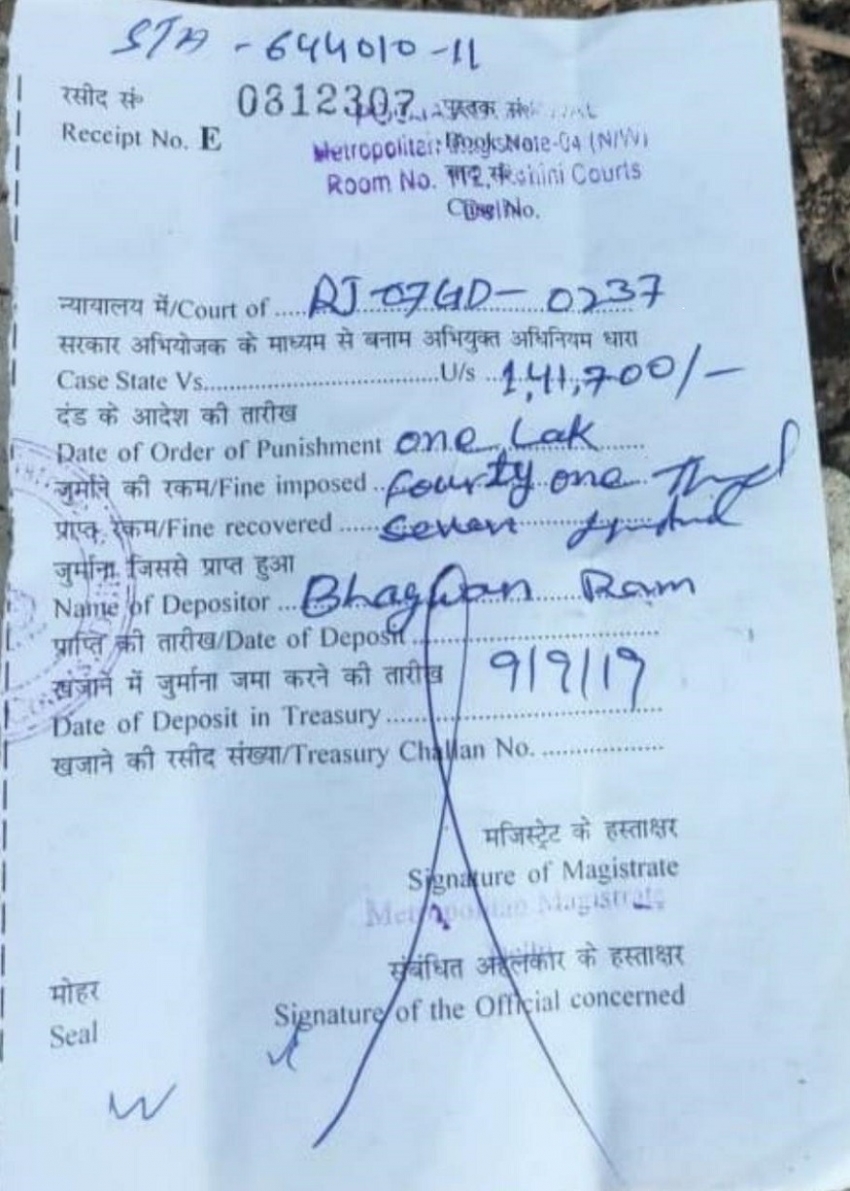 STA - 644010-11
रसीद सं० 0812307 पुस्तक सं०
Receipt No. E
Metropolitan
Room No. 112, Rohini Courts
Delhi
न्यायालय में/Court of ..... RJ-07GD-0237
सरकार अभियोजक के माध्यम से बनाम अभियुक्त अधिनियम धारा
Case State Vs........................................U/s ... 1,41,700/-
दंड के आदेश की तारीख
Date of Order of Punishment one Lak
जुर्माने की रकम/Fine imposed .. fourty one
प्राप्त रकम/Fine recovered ..... seven
जुर्माना जिससे प्राप्त हुआ
Name of Depositor ... Bhagwan Ram
प्राप्ति की तारीख/Date of Deposit ...........................................
खजाने में जुर्माना जमा करने की तारीख 9/9/19
Date of Deposit in Treasury ................................................
खजाने की रसीद संख्या/Treasury Challan No. .....................
मजिस्ट्रेट के हस्ताक्षर
Signature of Magistrate
Metropolitan Magistrate
संबंधित अहलकार के हस्ताक्षर
मोहर
Signature of the Official concerned
Seal